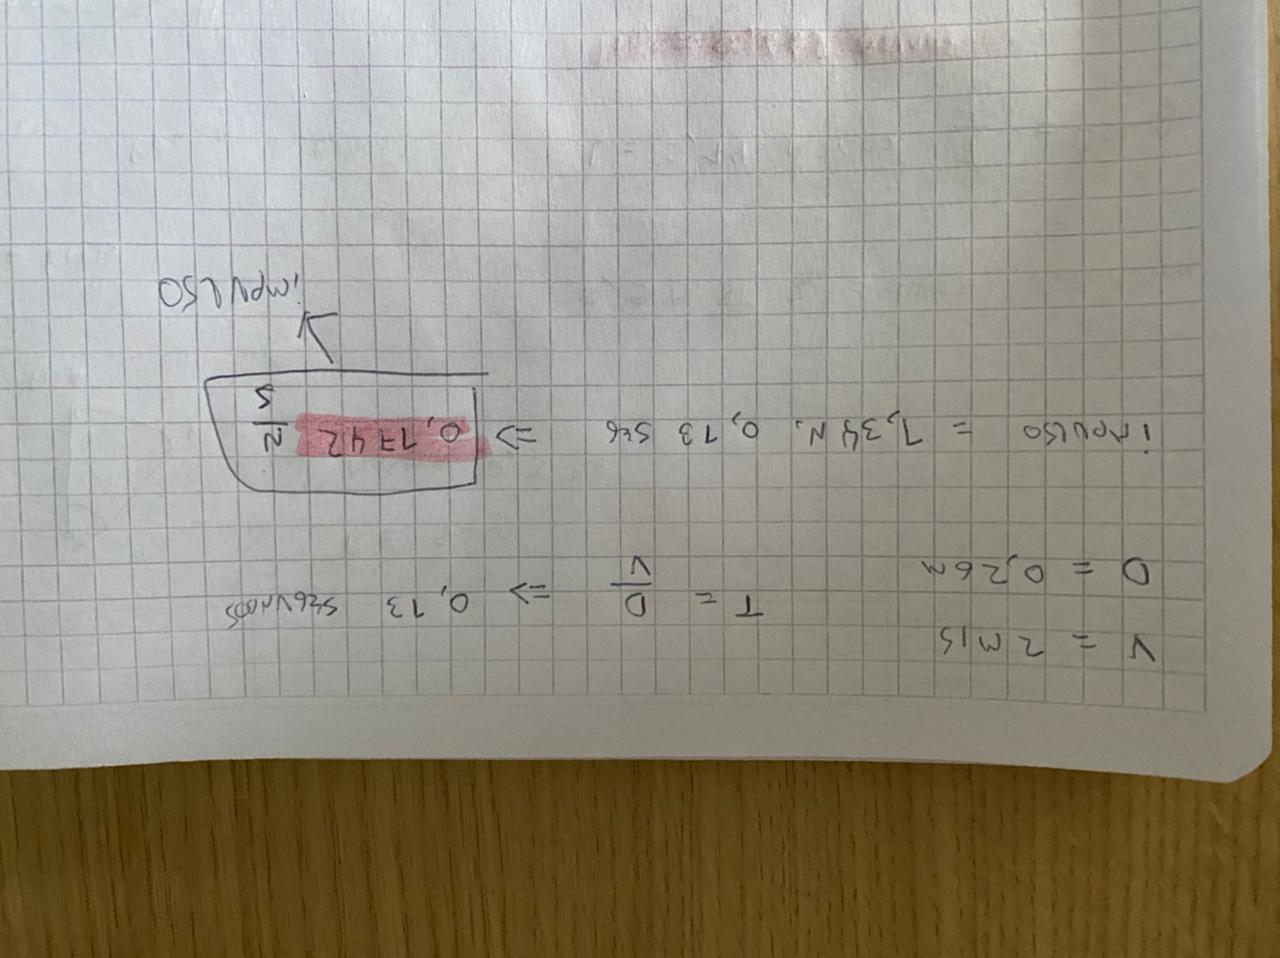 V = 2 m/s
D = 0,26 m
T = D/V => 0,13 SEGUNDOS
impulso = 1,34 N. 0,13 SEG => 0,1742 N/S
impulso